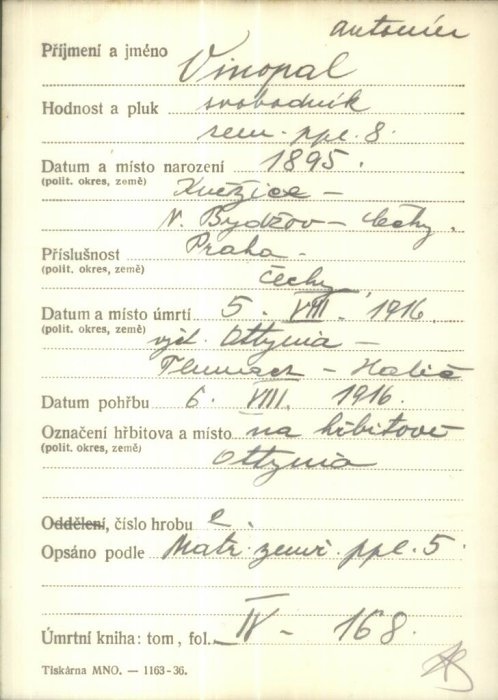 Antonín
Příjmení a jméno Vinopal
Hodnost a pluk svobodník
zem. ppl. 8.
Datum a místo narození 1895.
(polit. okres, země) Kněžice –
N. Bydžov – Čechy.
Příslušnost Praha –
(polit. okres, země) Čechy
Datum a místo úmrtí 5. VIII. 1916.
(polit. okres, země) Ottynia –
Tlumacz – Halič
Datum pohřbu 6. VIII. 1916.
Označení hřbitova a místo na hřbitově
(polit. okres, země) Ottynia
Oddělení, číslo hrobu
Opsáno podle Matr. zemř. ppl. 5.
Úmrtní kniha: tom, fol. IV – 168.
Tiskárna MNO. — 1163-36.